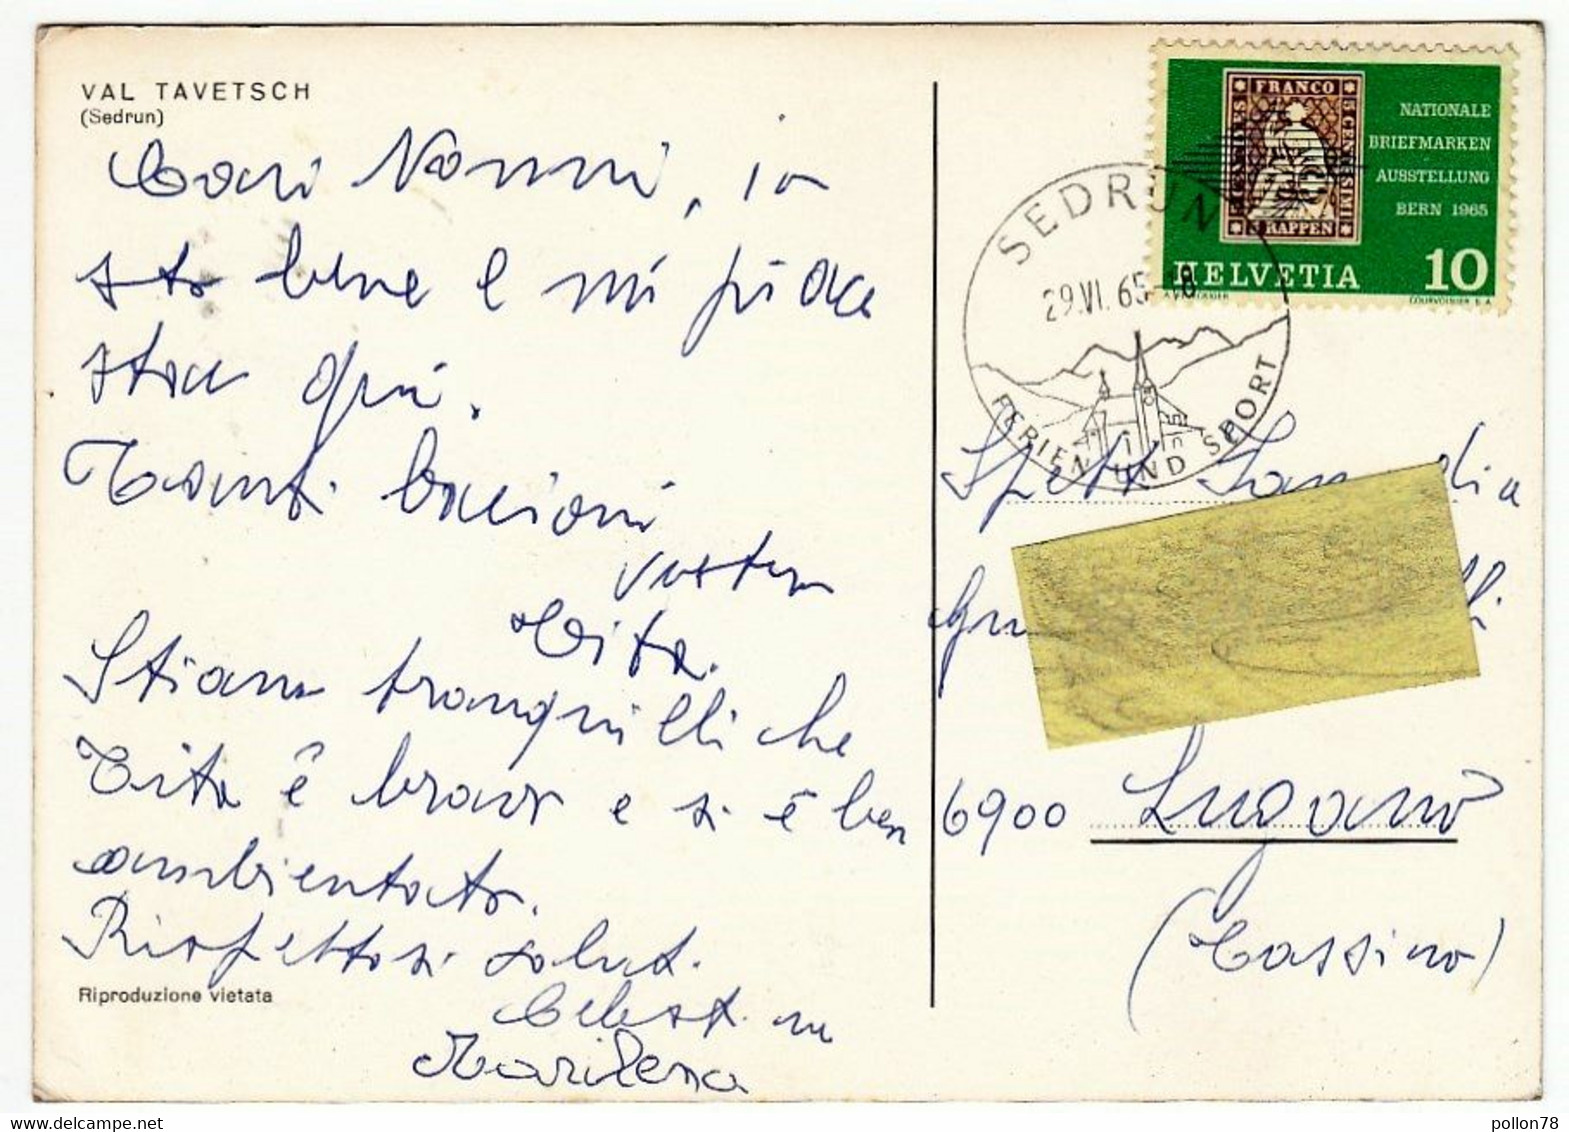 VAL TAVETSCH
(Sedrun)
Cari Nonni, io
sto bene e mi piace
stare qui.
Tanti bacioni
vostro
Tita.
Stiano tranquilli che
Tita è bravo e si è ben
ambientato.
Rispettosi saluti.
Celest. ni
Marilena
Riproduzione vietata
FRANCO
RAPPEN
NATIONALE
BRIEFMARKEN
AUSSTELLUNG
BERN 1965
HELVETIA 10
COURVOISIER S.A.
SEDRUN
29.VI.65-18
FERIEN UND SPORT
Spett. Fam.
6900 Lugano
(Cassino)
delcampe.net
pollon78